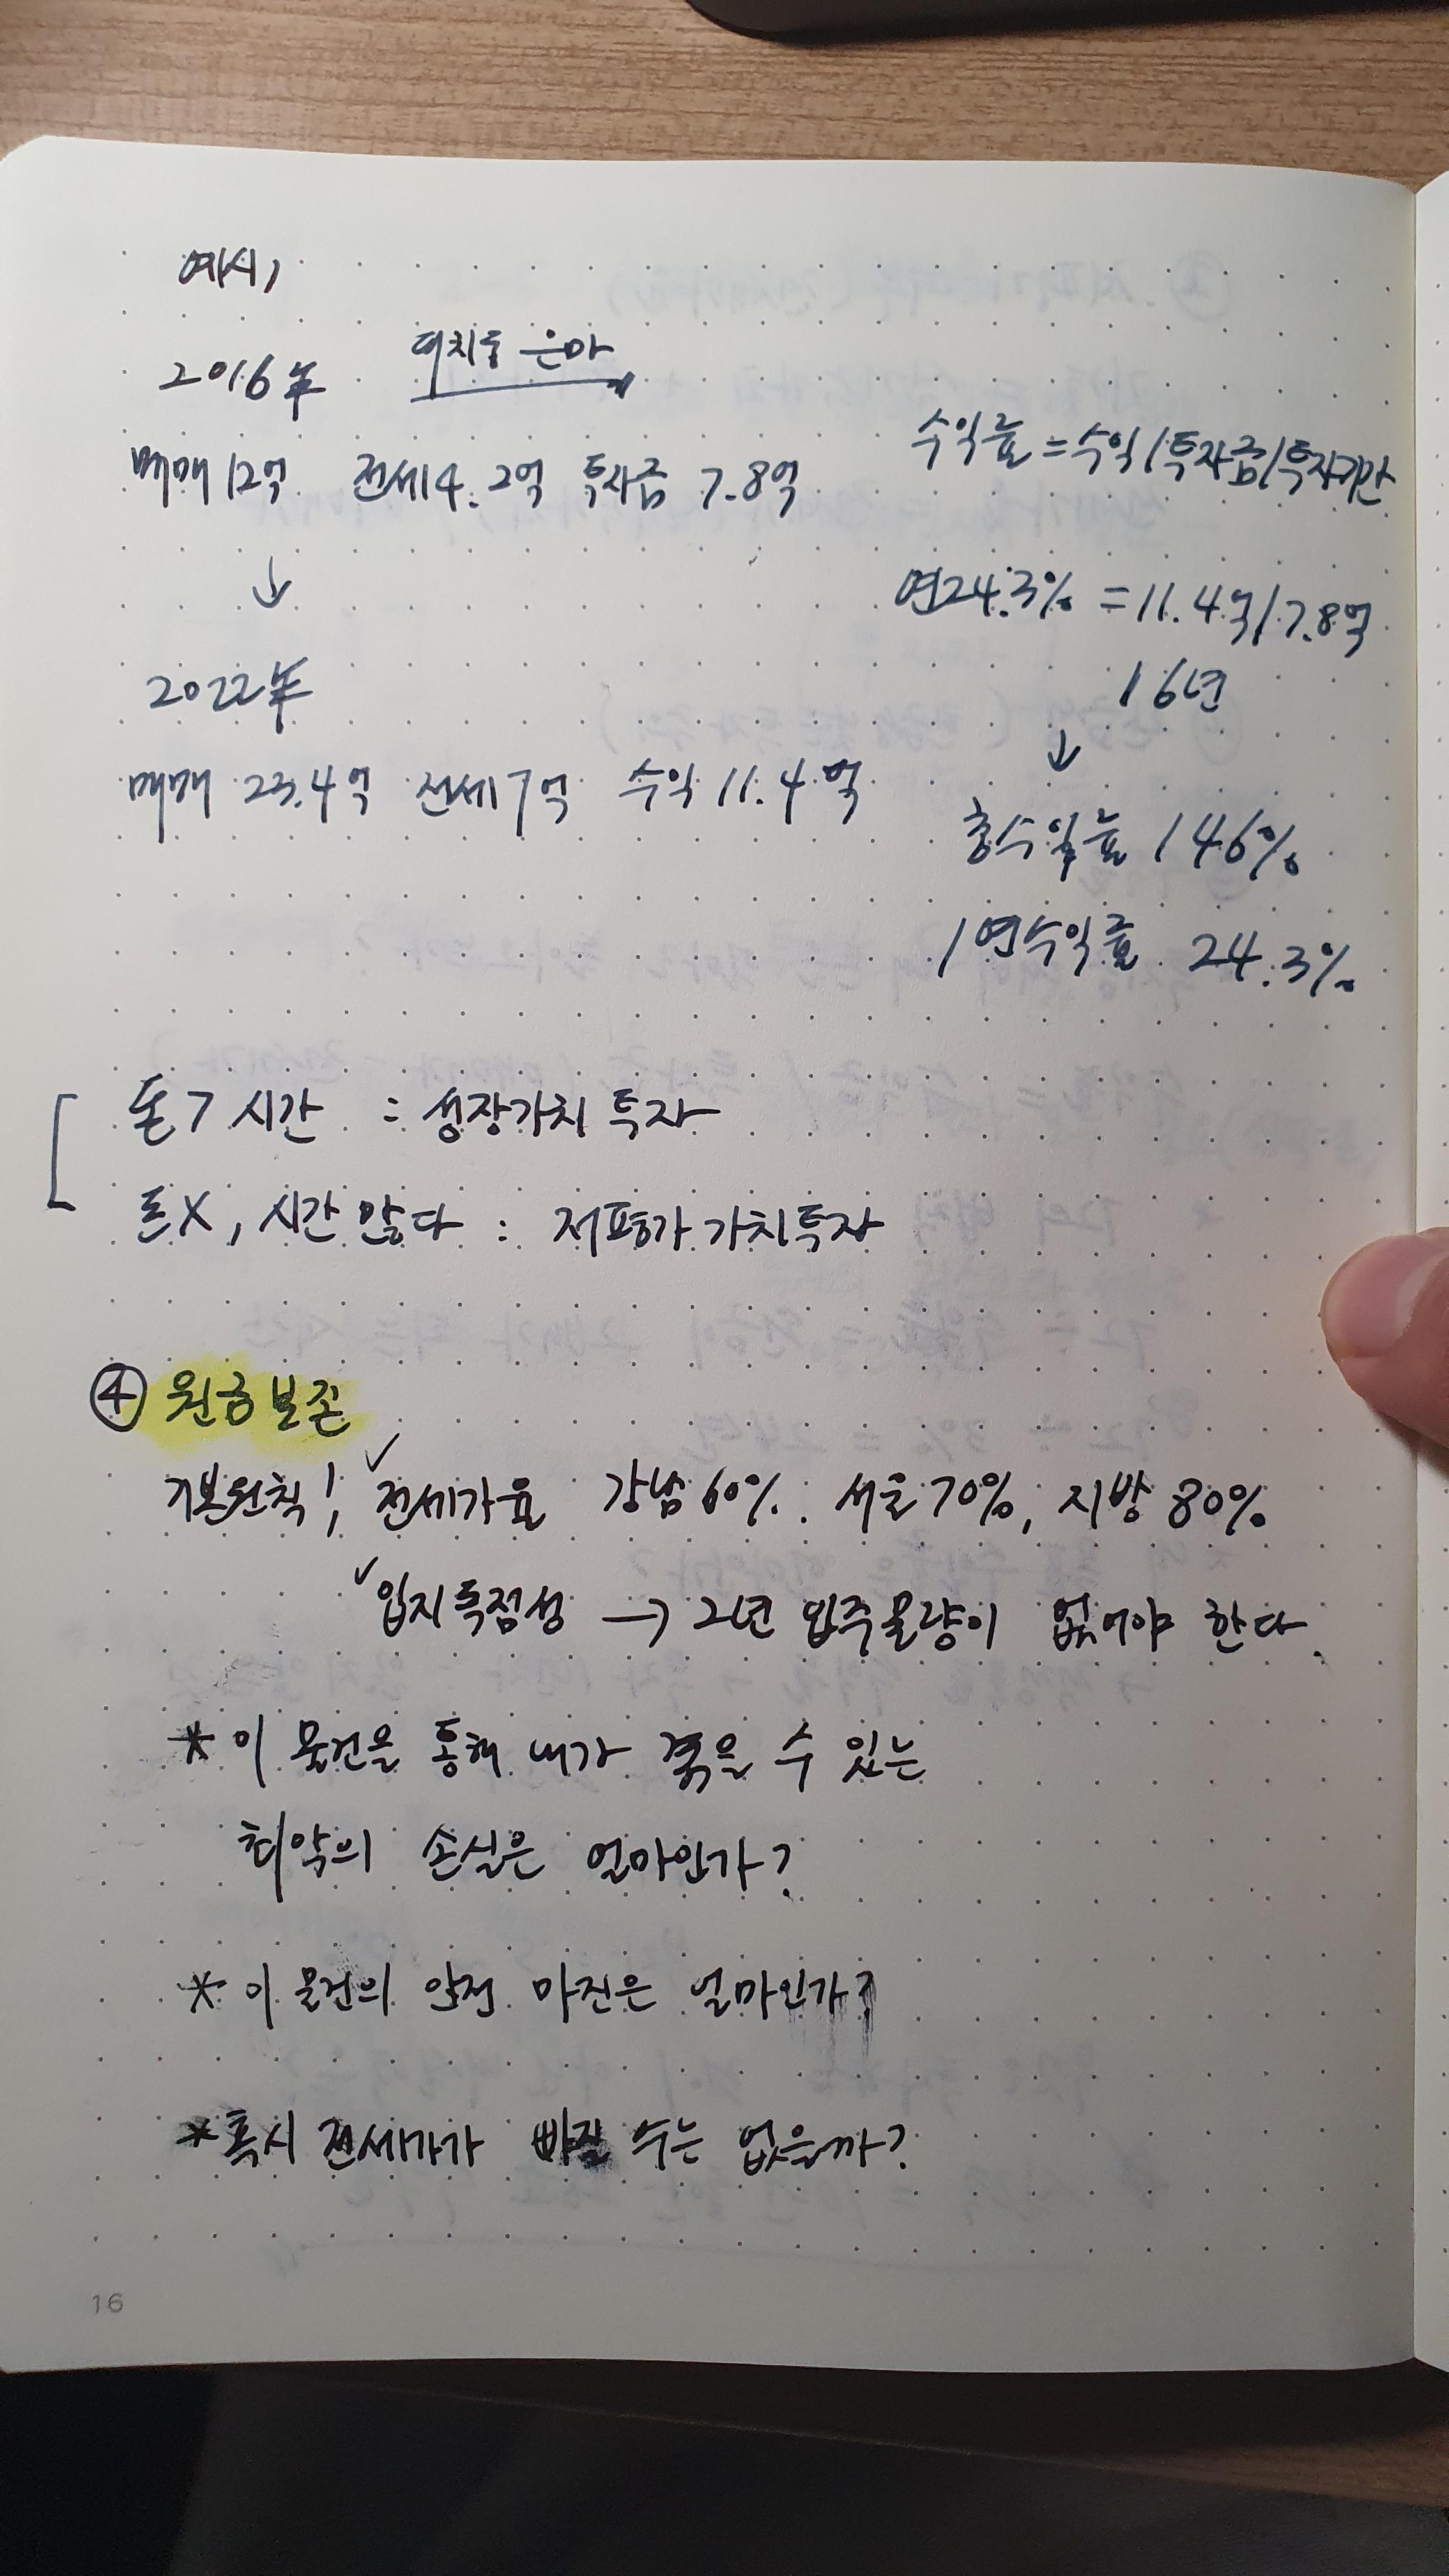 예시)
2016年 대치동 은마
매매 12억 전세 4.2억 투자금 7.8억
↓
2022年
매매 23.4억 전세 7억 수익 11.4억
수익률 = 수익/투자금/투자기간
연24.3% = 11.4억/7.8억
/6년
↓
총수익률 146%
/연수익률 24.3%
돈>시간 : 성장가치 투자
돈X, 시간 많다 : 저평가 가치투자
④ 원금보존
기본원칙! ✓전세가율 강남 60%. 서울 70%, 지방 80%
✓입지독점성 → 2년 입주물량이 없어야 한다.
* 이 물건을 통해 내가 겪을 수 있는
최악의 손실은 얼마인가?
* 이 물건의 안전 마진은 얼마인가?
* 혹시 전세가가 빠질 수는 없을까?
16